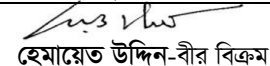 হেমায়েত উদ্দিন-বীর বিক্রম